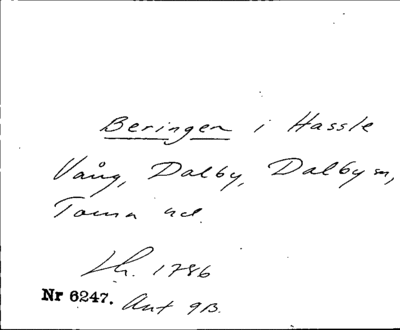 Beringen i Hassle
Vång, Dalby, Dalby sn,
Torna hd.
Lh. 1786
Nr 6247. Ant 9B.